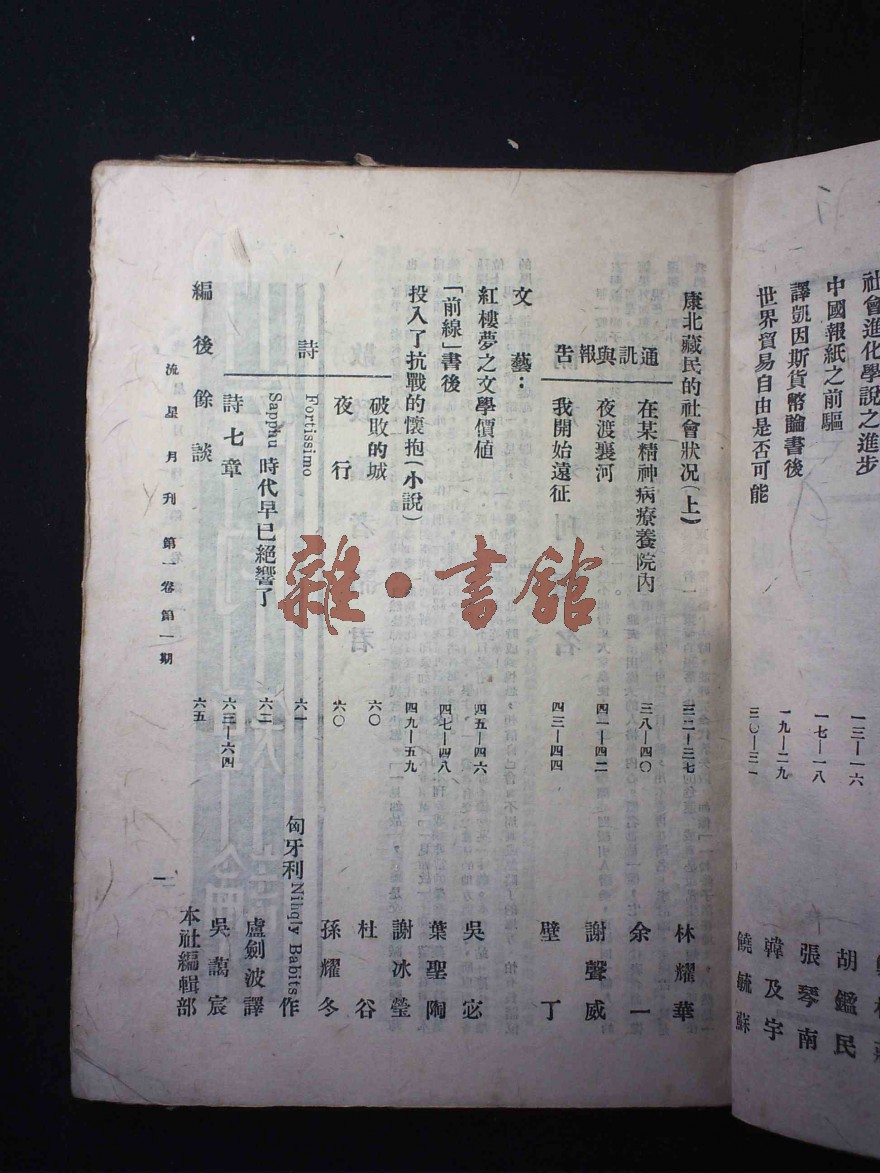 社會進化學說之進步 一三—一六
中國報紙之前驅 一七—一八 胡鑑民
譯凱因斯貨幣論書後 一九—二九 張琴南
世界貿易自由是否可能 三〇—三一 韓及宇
饒毓蘇
康北藏民的社會狀況(上) 三二—三七 林耀華
通訊與報告
在某精神病療養院內 三八—四〇 余一
夜渡襄河 四一—四二 謝聲威
我開始遠征 四三—四四 壁丁
文藝:
紅樓夢之文學價値 四五—四六 吳宓
「前線」書後 四七—四八 葉聖陶
投入了抗戰的懷抱(小說) 四九—五九 謝冰瑩
詩
破敗的城 六〇 杜谷
夜行 六〇 孫耀冬
Fortissimo 六一 匈牙利Nihgly Babits作
Sapphu 時代早已絕響了 六二 盧劍波譯
詩七章 六三—六四 吳藹宸
編後餘談 六五 本社編輯部
流星月刊 第一卷第一期 一
雜·書館